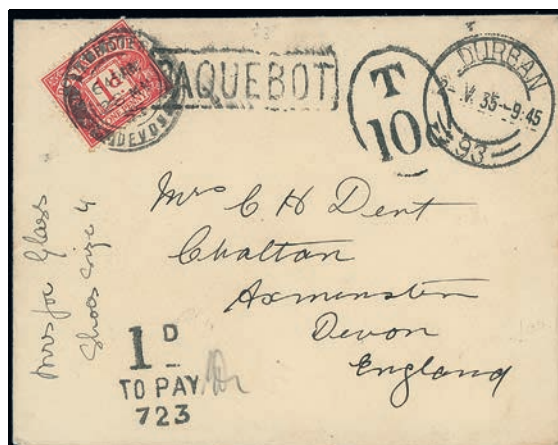 1d
DEVON
PAQUEBOT
T
10c
DURBAN
V 35-9:45
93
Mrs C H Dent
Chattan
Axminster
Devon
England
Mrs Joe Glass
Shoes size 4
1D
TO PAY
723